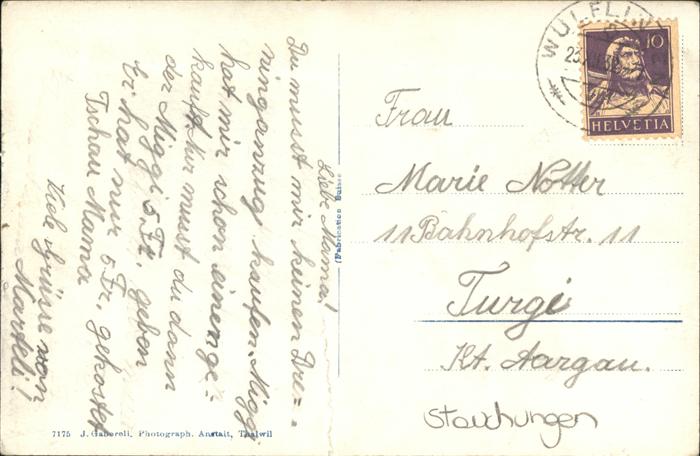 Liebe Mama!
Du musst mir keinen Dre=
ninganzug kaufen. Miggi
hat mir schon einen ge=
kauft. Nur musst du dann
der Miggi 5 Fr. geben
Er hat nur 5 Fr. gekostet
Tschau Mama
Viele Grüsse von
Marteli!
(Fabrication Suisse
7175 J. Gaberell, Photograph. Anstalt, Thalwil
WÜLFLIN
10
HELVETIA
Frau
Marie Notter
11 Bahnhofstr. 11
Turgi
Kt. Aargau.
Stauchungen